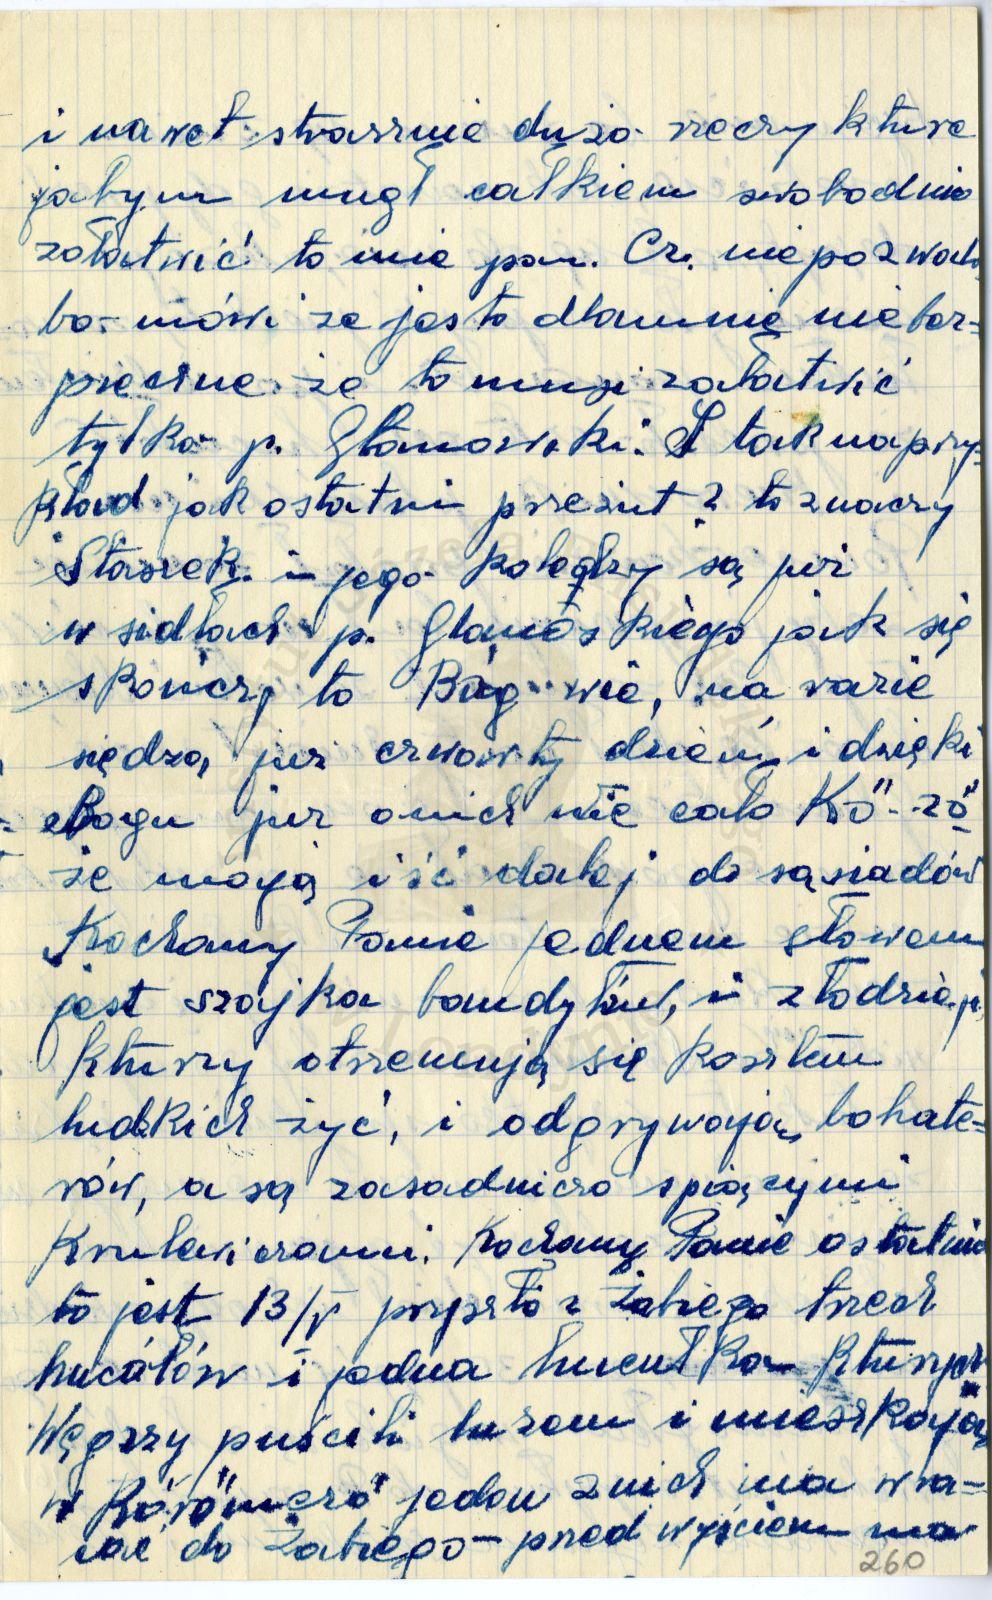 i nawet strasznie dużo rzeczy kture
jabym mugł całkiem swobodnie
załatwić to mie pan. Cz. niepozwala
bo- mówi że jest to dlamnię niebez-
pieczne że to musi załatwić
tylko p. Głanowski. I tak naprzy-
kład jak ostatni przeżut? to znaczy
Staszek. i jego koledzy są już
w sidłach p. Glanoskiego jak się
skończy to Bóg wie, na razie
siędzą już czwarty dzień i dzięki
Bogu już onich wie cało Kö"-zö"
że mogą iść dalej do sąsiadów
Kochany Panie jednem słowem
jest szajka bandytów, i złodzieji
kturzy otrzemują się kosztem
ludzkich żyć, i odgrywają bohate-
rów, a są zasadniczo śpiącymi
Krulewiczami. Kochany Panie ostatnio
to jest 13/V przyszło z Żabiego trzech
hucułów i jedna hucułka kturych
Węgrzy puścili luzem i mieszkają
w Körösmező jeden znich ma wra-
cać do Żabiego- przed wyjściem ma
260